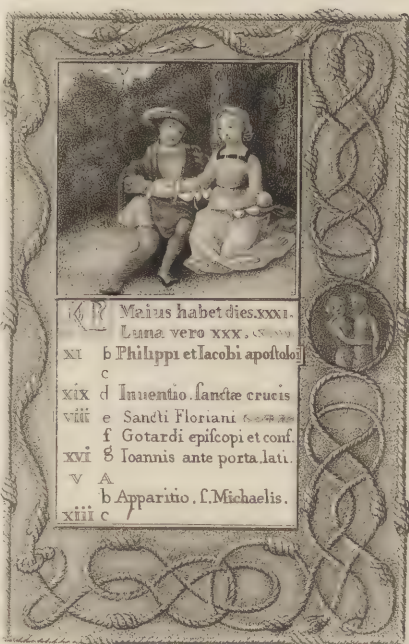 KL Maius habet dies.xxxi.
Luna vero xxx.
xi b Philippi et Iacobi apostoloꝝ
c
xix d Inuentio.sanctæ crucis
viii e Sancti Floriani
f Gotardi episcopi et conf.
xvi g Ioannis ante porta.lati.
v A
b Apparitio.s.Michaelis.
xiii c